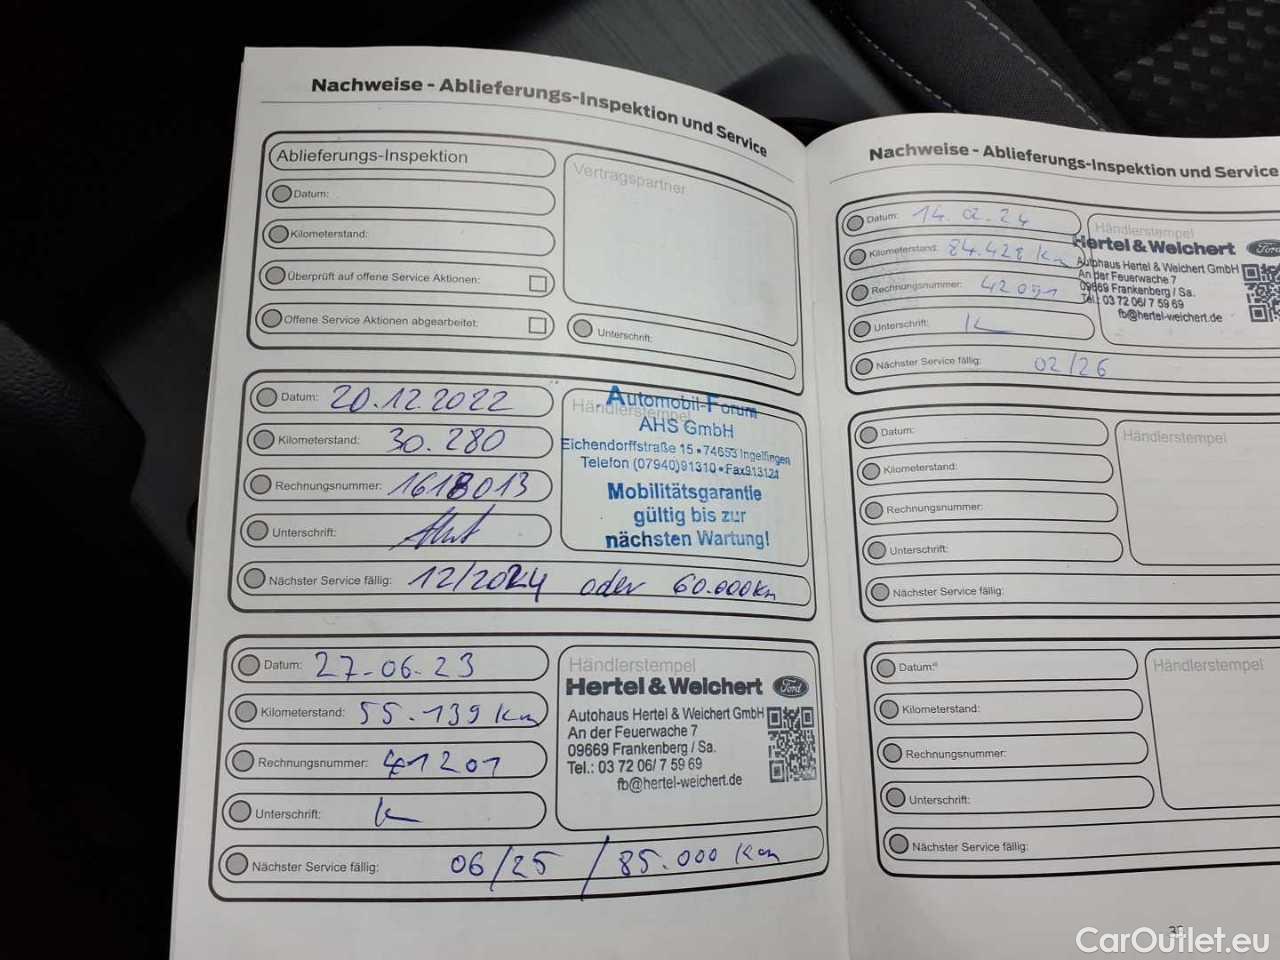 Nachweise - Ablieferungs-Inspektion und Service
Ablieferungs-Inspektion
Datum:
Kilometerstand:
Überprüft auf offene Service Aktionen:
Offene Service Aktionen abgearbeitet:
Vertragspartner
Unterschrift:
Datum: 20.12.2022
Kilometerstand: 30.280
Rechnungsnummer: 1618013
Unterschrift:
Händlerstempel
Automobil-Forum
AHS GmbH
Eichendorffstraße 15 • 74653 Ingelfingen
Telefon (07940) 91310 • Fax 913124
Mobilitätsgarantie
gültig bis zur
nächsten Wartung!
Nächster Service fällig: 12/2024 oder 60.000km
Datum: 27.06.23
Kilometerstand: 55.139 Km
Rechnungsnummer: 41201
Unterschrift:
Händlerstempel
Hertel & Weichert Ford
Autohaus Hertel & Weichert GmbH
An der Feuerwache 7
09669 Frankenberg / Sa.
Tel.: 03 72 06/ 7 59 69
fb@hertel-weichert.de
Nächster Service fällig: 06/25 / 85.000 Km
Nachweise - Ablieferungs-Inspektion und Service
Datum: 14.02.24
Kilometerstand: 84.428 Km
Rechnungsnummer: 42091
Unterschrift:
Händlerstempel
Hertel & Weichert Ford
Autohaus Hertel & Weichert GmbH
An der Feuerwache 7
09669 Frankenberg / Sa.
Tel.: 03 72 06/ 7 59 69
fb@hertel-weichert.de
Nächster Service fällig: 02/26
Datum:
Kilometerstand:
Rechnungsnummer:
Unterschrift:
Händlerstempel
Nächster Service fällig:
Datum:
Kilometerstand:
Rechnungsnummer:
Unterschrift:
Händlerstempel
Nächster Service fällig:
CarOutlet.eu